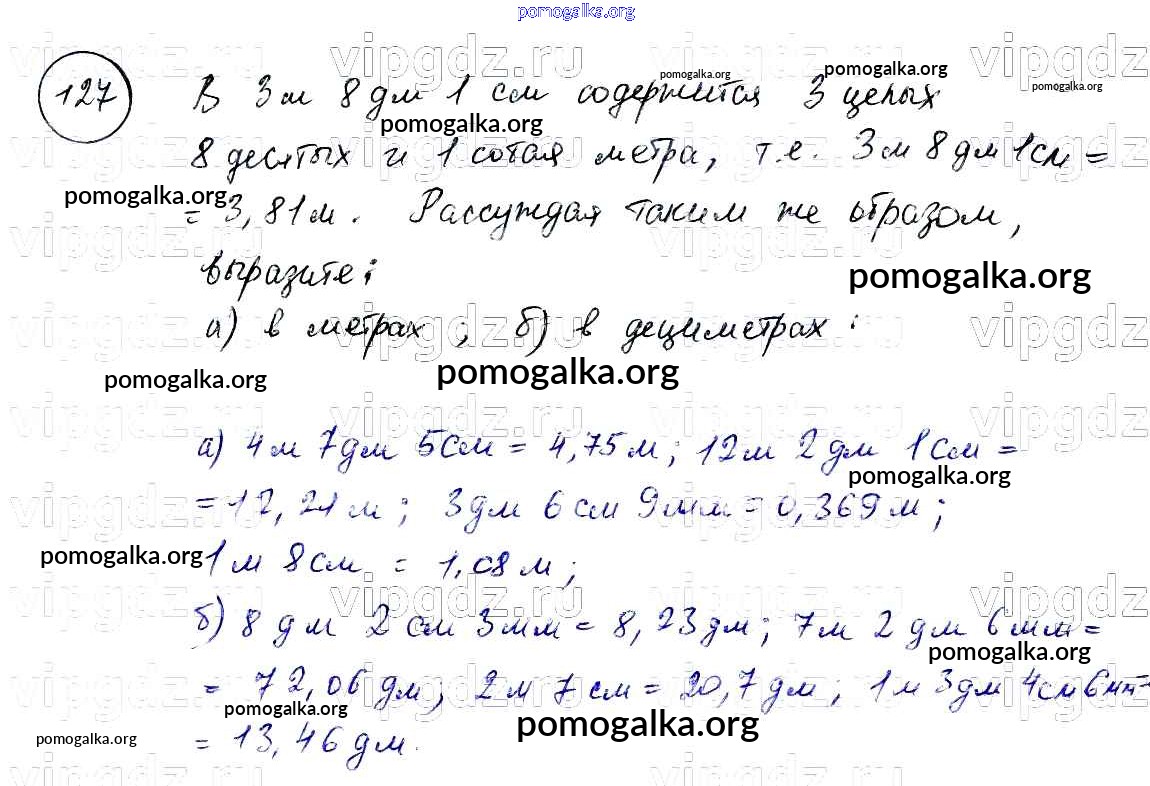 pomogalka.org
127 В 3 м 8 дм 1 см содержится 3 целых
8 десятых и 1 сотая метра, т.е. 3 м 8 дм 1 см =
= 3,81 м. Рассуждая таким же образом,
выразите:
а) в метрах ; б) в дециметрах :
а) 4 м 7 дм 5 см = 4,75 м; 12 м 2 дм 1 см =
= 12,21 м; 3 дм 6 см 9 мм = 0,369 м;
1 м 8 см = 1,08 м;
б) 8 дм 2 см 3 мм = 8,23 дм; 7 м 2 дм 6 мм =
= 72,06 дм; 2 м 7 см = 20,7 дм; 1 м 3 дм 4 см 6 мм =
= 13,46 дм.
pomogalka.org
pomogalka.org
pomogalka.org
pomogalka.org
pomogalka.org
pomogalka.org
pomogalka.org
pomogalka.org
pomogalka.org
pomogalka.org
pomogalka.org
pomogalka.org
pomogalka.org
pomogalka.org
vipgdz.ru vipgdz.ru vipgdz.ru vipgdz